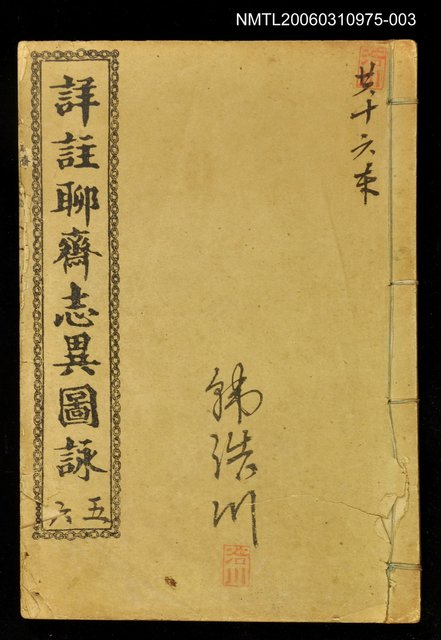 NMTL20060310975-003
共十六本
詳註聊齋志異圖詠
五
六
浩川
浩川